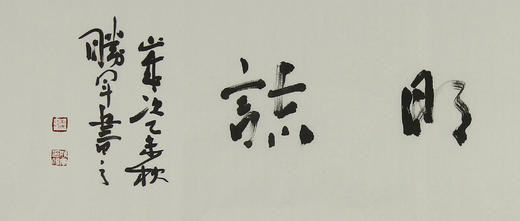 明誌
歲次乙未秋
勝軍書之